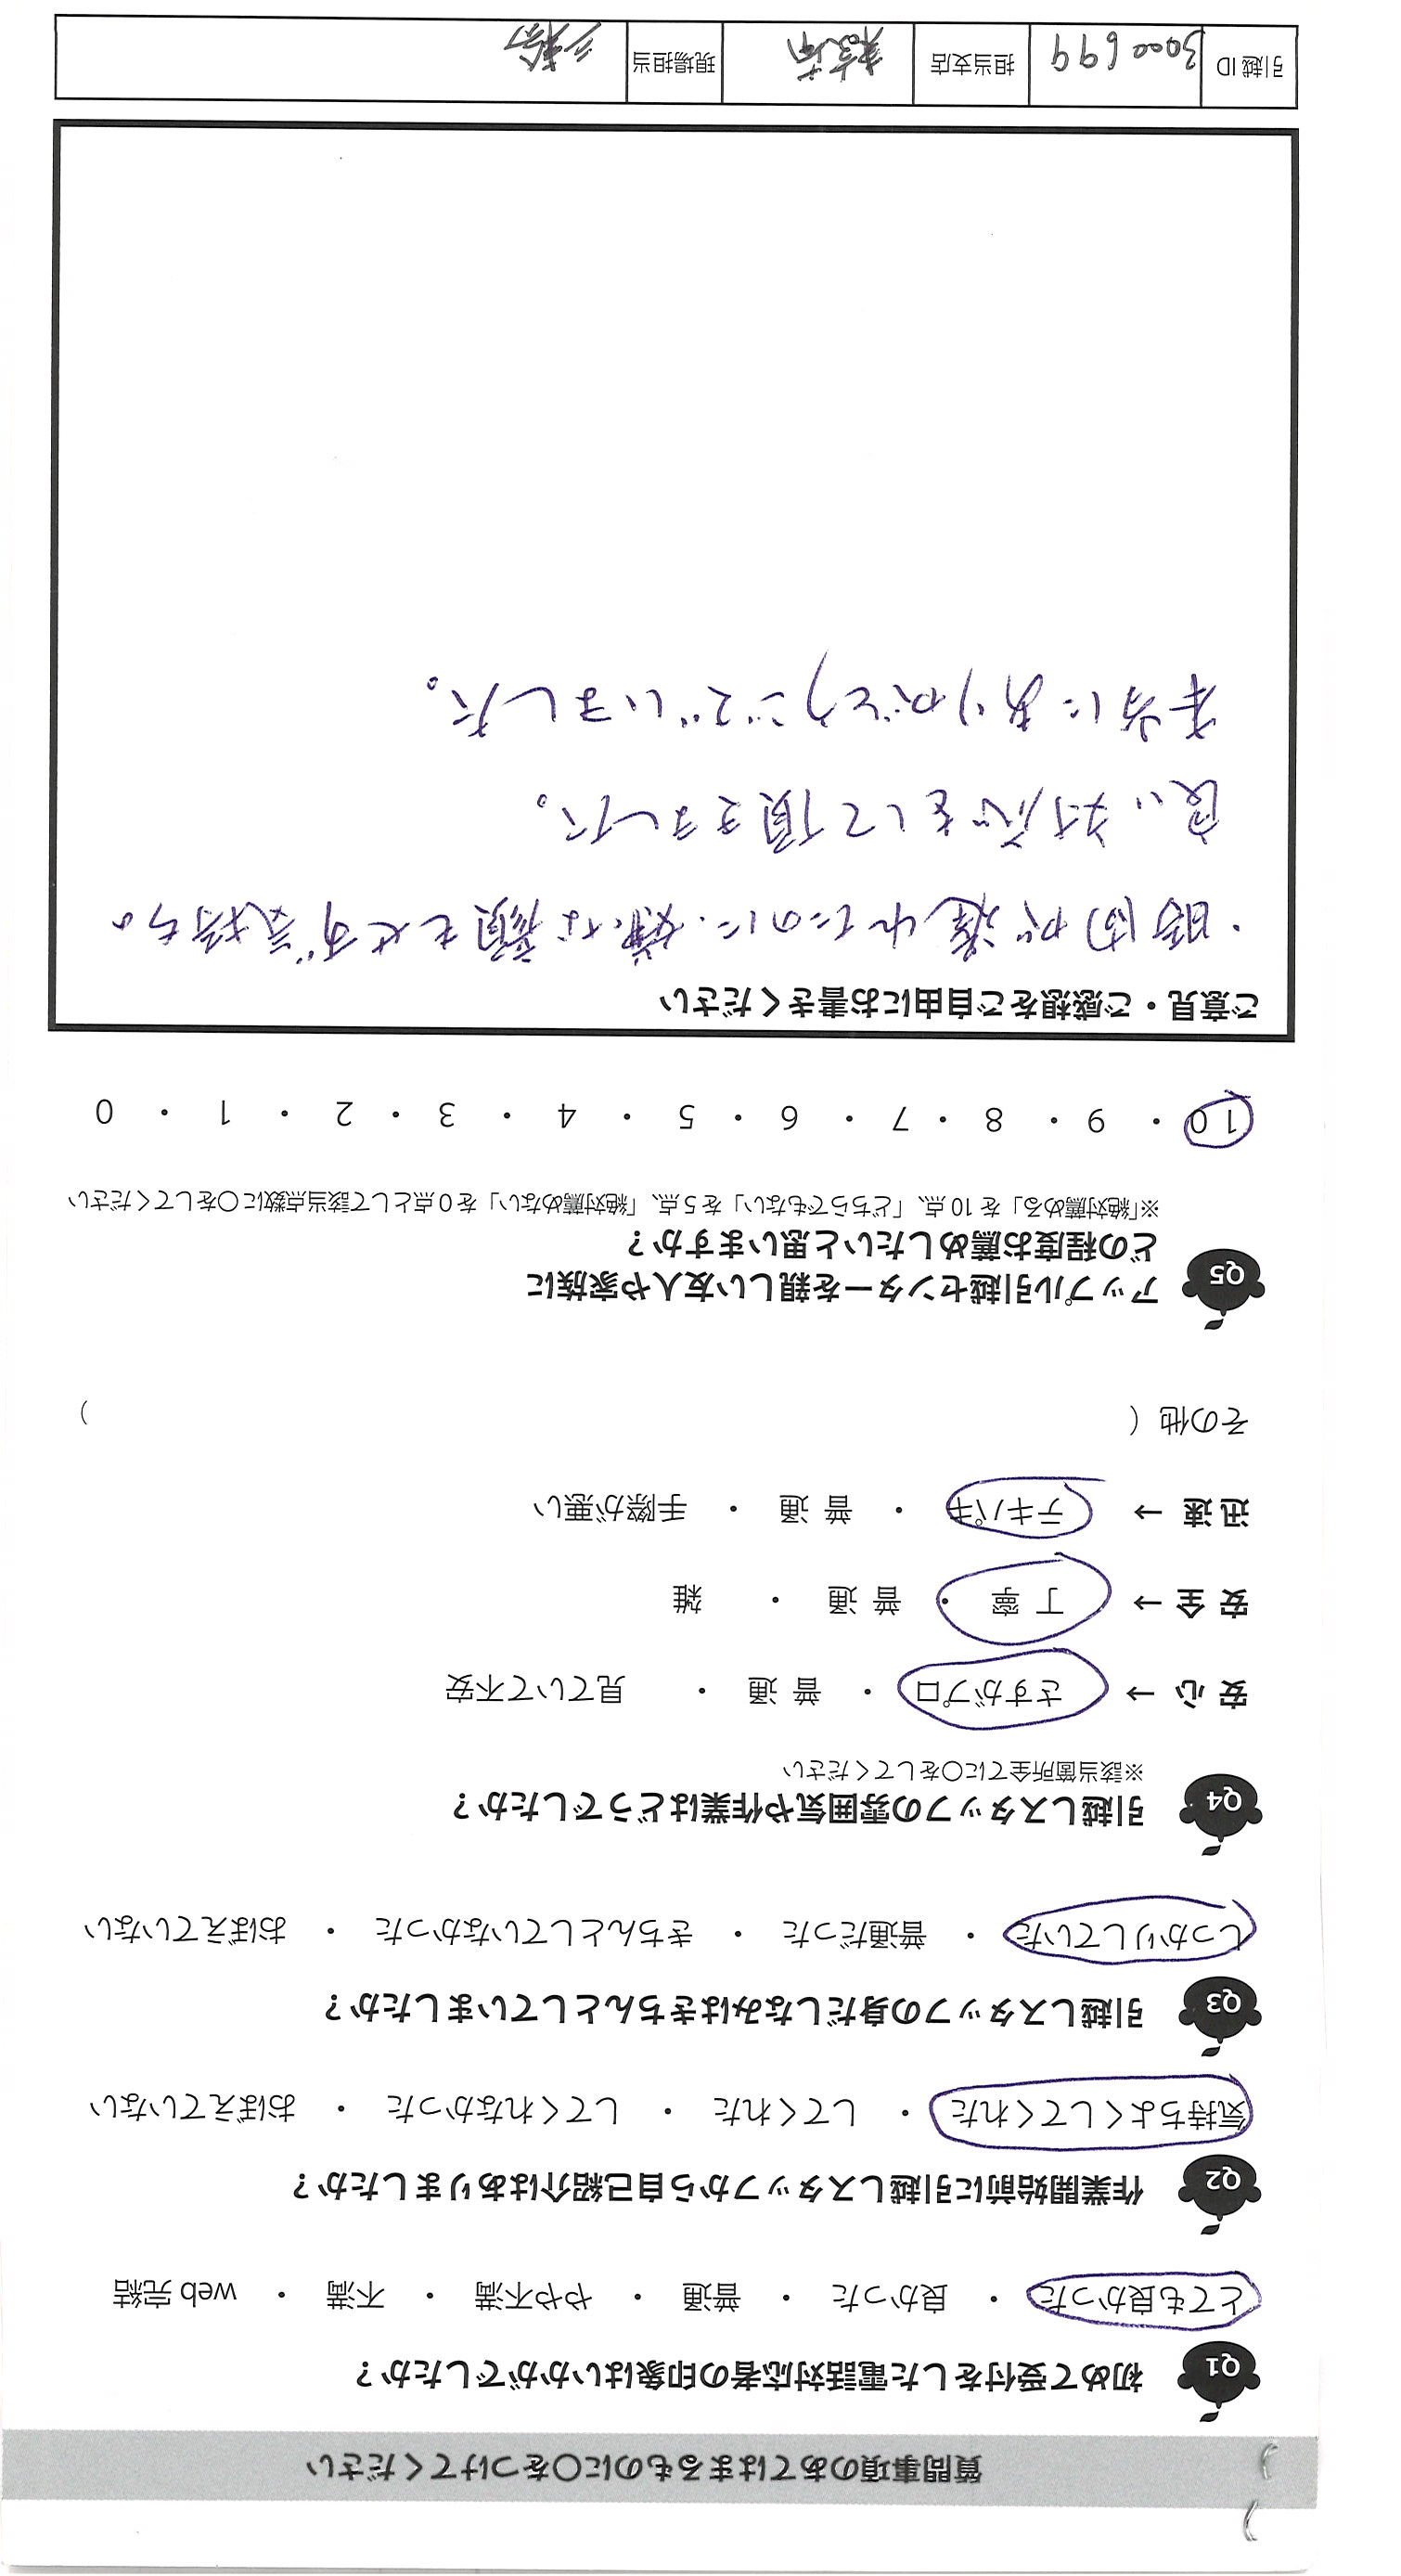 質問事項のあてはまるものに〇をつけてください
Q1 初めて受付をした電話対応者の印象はいかがでしたか？
とても良かった ・ 良かった ・ 普通 ・ やや不満 ・ 不満 ・ web 完結
Q2 作業開始前に引越しスタッフから自己紹介はありましたか？
気持ちよくしてくれた ・ してくれた ・ してくれなかった ・ おぼえていない
Q3 引越しスタッフの身だしなみはきちんとしていましたか？
しっかりしていた ・ 普通だった ・ きちんとしていなかった ・ おぼえていない
Q4 引越しスタッフの雰囲気や作業はどうでしたか？
※該当箇所全てに〇をしてください
安 心 → さすがプロ ・ 普 通 ・ 見ていて不安
安 全 → 丁 寧 ・ 普 通 ・ 雑
迅 速 → テキパキ ・ 普 通 ・ 手際が悪い
その他（ ）
Q5 アップル引越センターを親しい友人や家族に
どの程度お薦めしたいと思いますか？
※「絶対薦める」を 10 点、「どちらでもない」を 5 点、「絶対薦めない」を 0 点として該当点数に〇をしてください
10 ・ 9 ・ 8 ・ 7 ・ 6 ・ 5 ・ 4 ・ 3 ・ 2 ・ 1 ・ 0
ご意見・ご感想をご自由にお書きください
・時間が遅れたのに、嫌な顔もせず気持ちの
良い対応をして頂きました。
本当にありがとうございました。
引越 ID 3000699 担当支店 現場担当